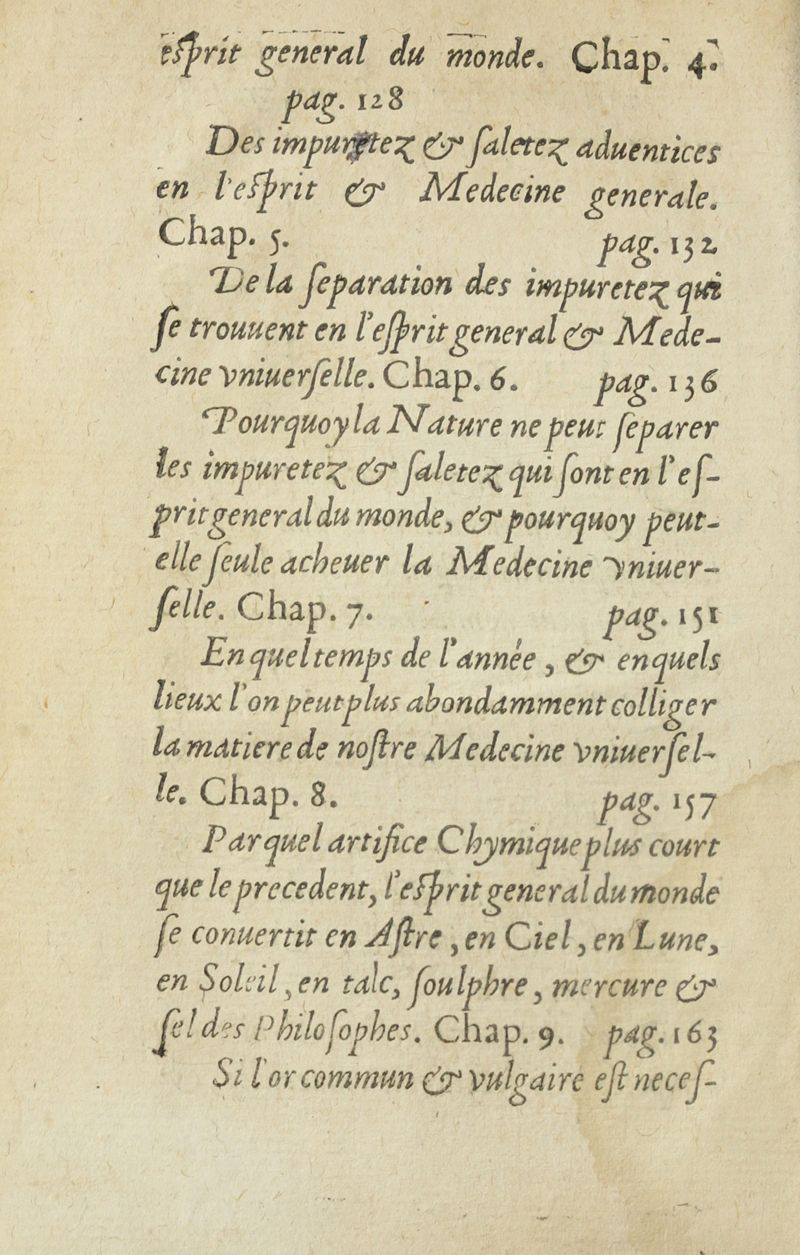 esprit general du monde. Chap. 4.
pag. 128
Des impuretez & saletez aduentices
en l'esprit & Medecine generale.
Chap. 5. pag. 132
De la separation des impuretez qui
se trouuent en l'esprit general & Mede-
cine vniuerselle. Chap. 6. pag. 136
Pourquoy la Nature ne peut separer
les impuretez & saletez qui sont en l'es-
prit general du monde, & pourquoy peut-
elle seule acheuer la Medecine vniuer-
selle. Chap. 7. pag. 151
En quel temps de l'année, & en quels
lieux l'on peut plus abondamment colliger
la matiere de nostre Medecine vniuersel-
le. Chap. 8. pag. 157
Par quel artifice Chymique plus court
que le precedent, l'esprit general du monde
se conuertit en Astre, en Ciel, en Lune,
en Soleil, en talc, soulphre, mercure &
sel des Philosophes. Chap. 9. pag. 163
Si l'or commun & vulgaire est neces-